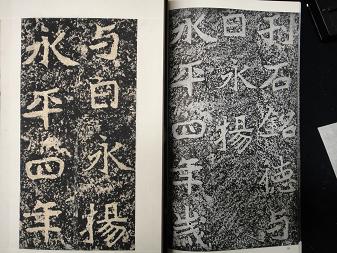 刊石銘德与
日永揚
永平四年歲
与日永揚
永平四年